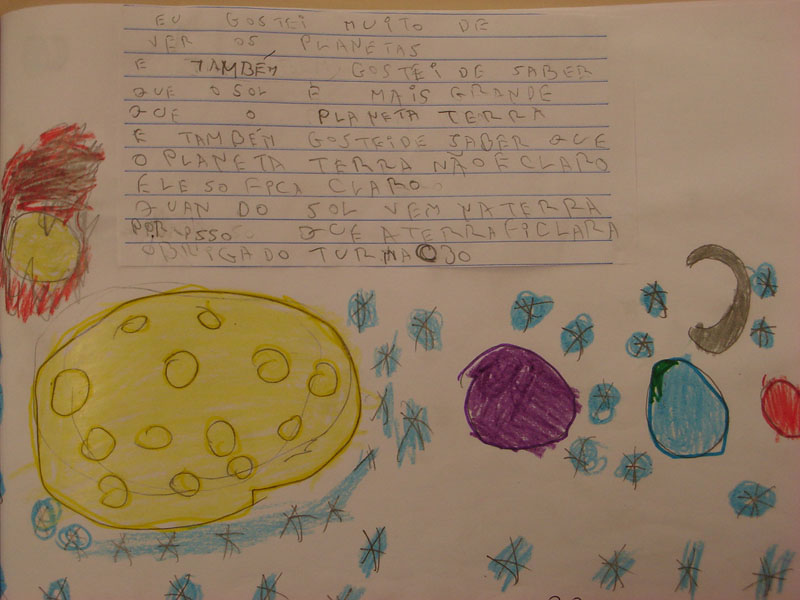 EU GOSTEI MUITO DE
VER OS PLANETAS
E TAMBÉM GOSTEI DE SABER
QUE O SOL É MAIS GRANDE
QUE O PLANETA TERRA
E TAMBÉM GOSTEI DE SABER QUE
O PLANETA TERRA NÃO E CLARO
ELE SO FICA CLARO
QUAN DO SOL VEM NA TERRA
POR ISSO QUE A TERRA FI CLARA
OBRIGADO TURMA